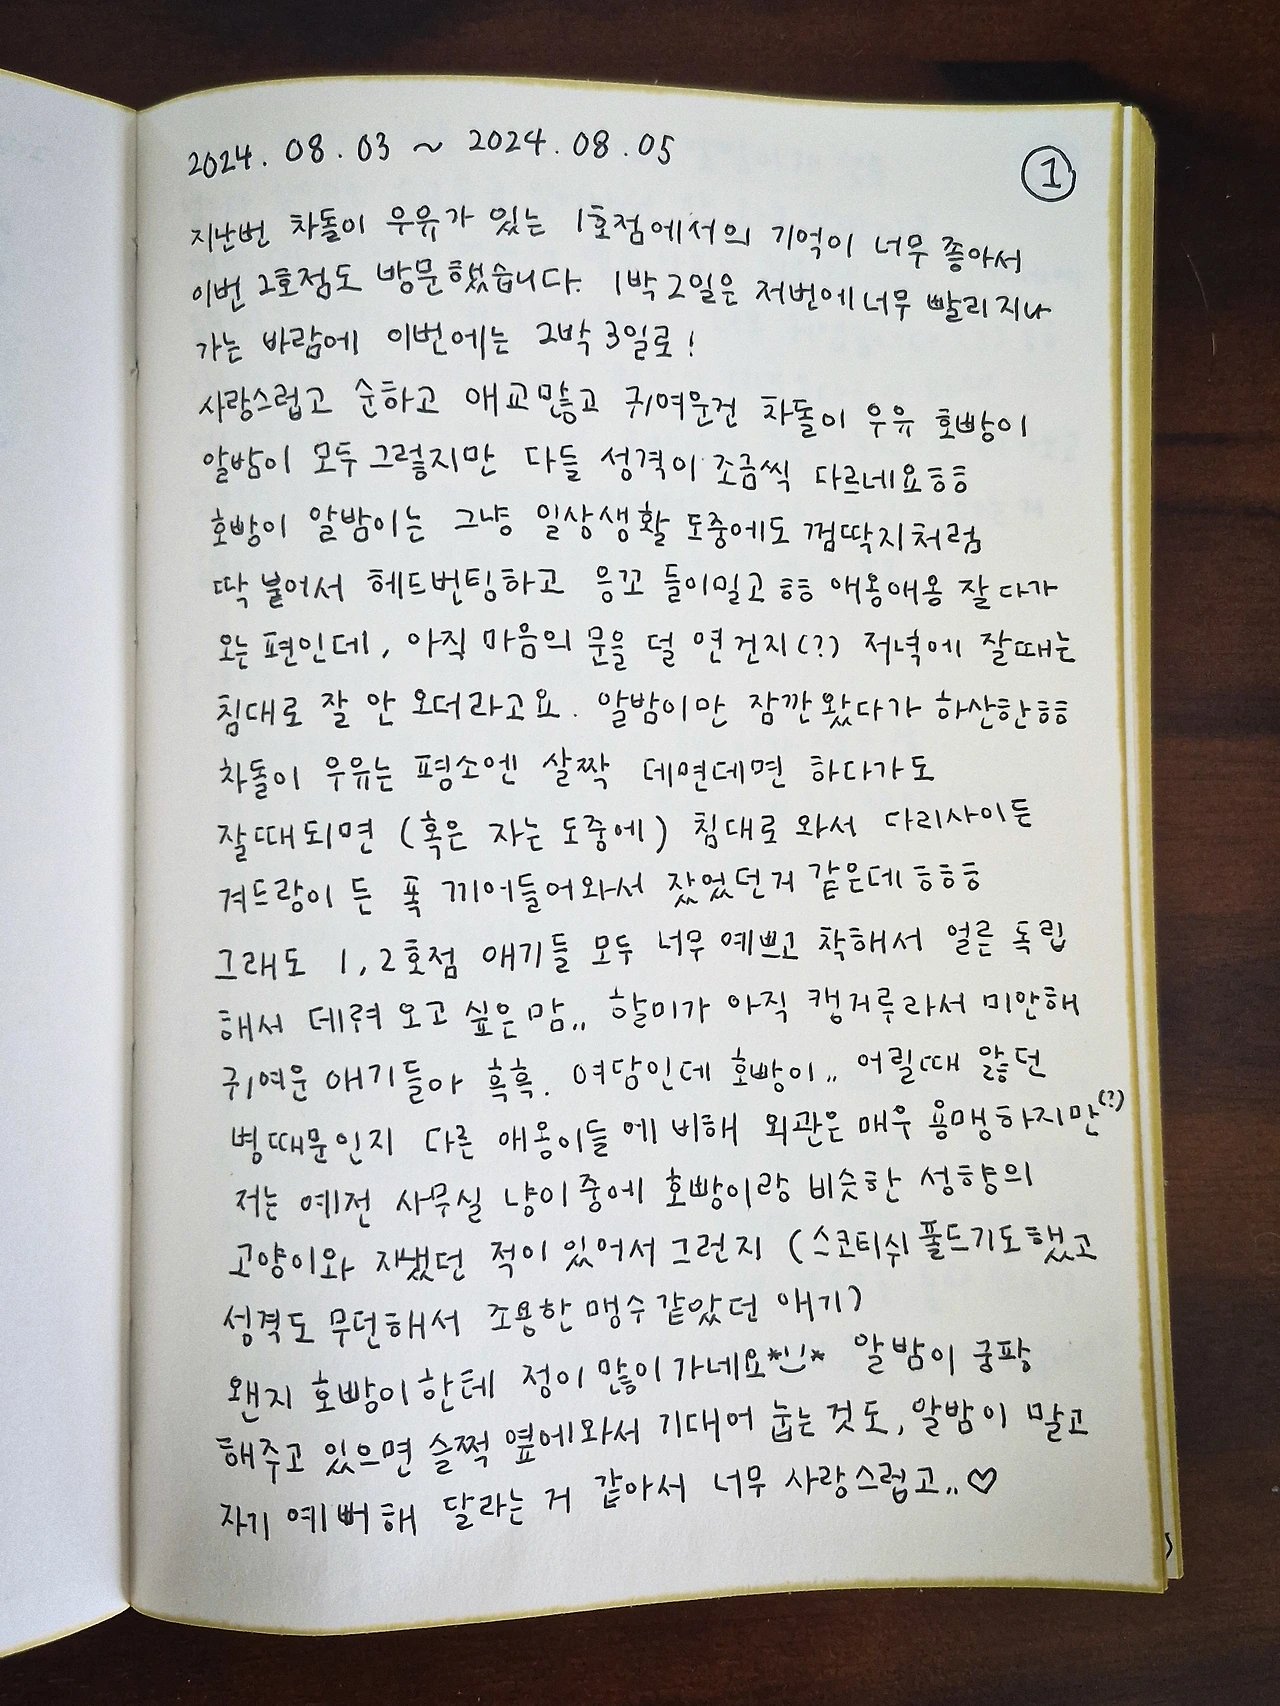 2024. 08. 03 ~ 2024. 08. 05
①
지난번 차돌이 우유가 있는 1호점에서의 기억이 너무 좋아서
이번 2호점도 방문했습니다. 1박 2일은 저번에 너무 빨리 지나
가는 바람에 이번에는 2박 3일로!
사랑스럽고 순하고 애교많고 귀여운건 차돌이 우유 호빵이
알밤이 모두 그렇지만 다들 성격이 조금씩 다르네요ㅎㅎ
호빵이 알밤이는 그냥 일상생활 도중에도 껌딱지처럼
딱 붙어서 헤드번팅하고 응꼬 들이밀고 ㅎㅎ 애옹애옹 잘 다가
오는 편인데, 아직 마음의 문을 덜 연건지(?) 저녁에 잘때는
침대로 잘 안 오더라고요. 알밤이만 잠깐 왔다가 하산한ㅎㅎ
차돌이 우유는 평소엔 살짝 데면데면 하다가도
잘때되면 (혹은 자는 도중에) 침대로 와서 다리사이든
겨드랑이 든 폭 끼어들어와서 잤었던거 같은데 ㅎㅎㅎ
그래도 1, 2호점 애기들 모두 너무 예쁘고 착해서 얼른 독립
해서 데려 오고 싶은 맘.. 할미가 아직 캥거루라서 미안해
귀여운 애기들아 흑흑. 여담인데 호빵이.. 어릴때 앓던
병때문인지 다른 애옹이들에 비해 외관은 매우 용맹하지만(?)
저는 예전 사무실 냥이 중에 호빵이랑 비슷한 성향의
고양이와 지냈던 적이 있어서 그런지 (스코티쉬 폴드기도 했고
성격도 무던해서 조용한 맹수 같았던 애기)
왠지 호빵이한테 정이 많이 가네요*¨̮* 알밤이 궁팡
해주고 있으면 슬쩍 옆에와서 기대어 눕는 것도, 알밤이 말고
자기 예뻐해 달라는 거 같아서 너무 사랑스럽고..♡